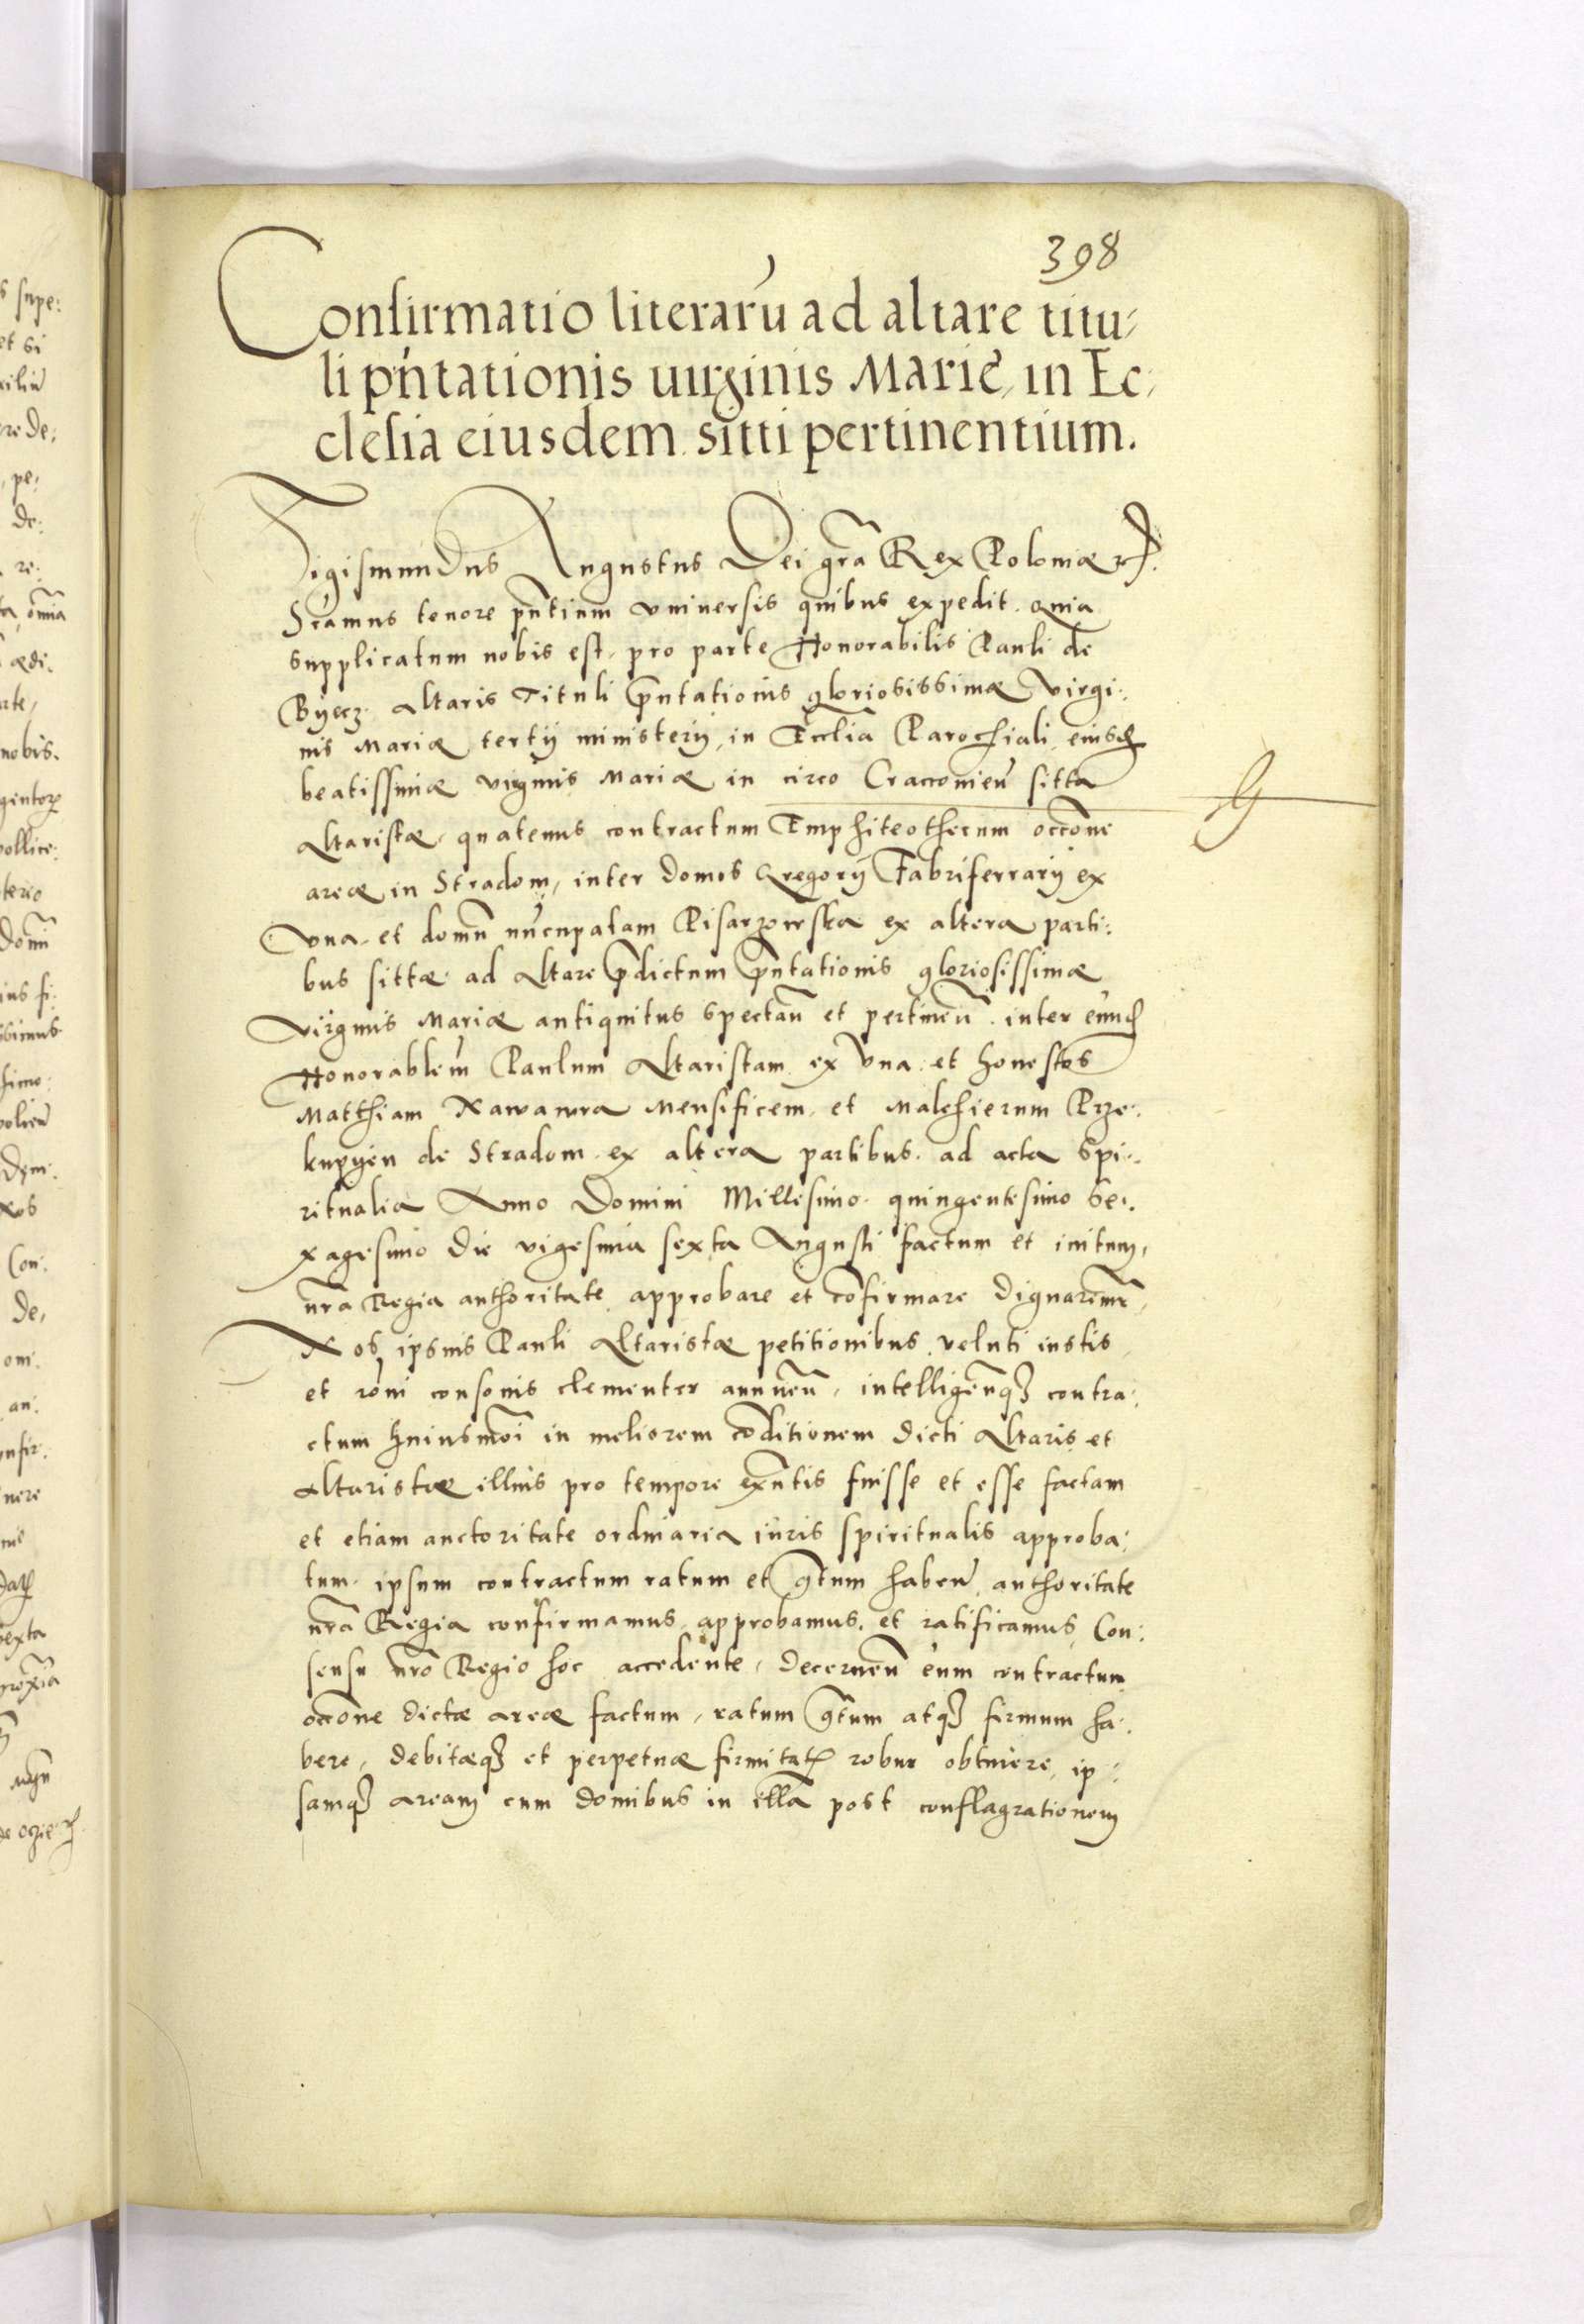 398
Confirmatio literarũ ad altare titu,
li pñtationis uirginis Marię, in Ec,
clesia eiusdem sitti pertinentium.
Sigismundus Augustus Dei grã Rex Poloniæ
Sramus tenore pñtium vniuersis quibus expedit. Quia
supplicatum nobis est, pro parte Honorabilis Pauli de
Byecz Altaris Tituli Pñtationis gloriosissimæ Virgi:
nis Mariæ tertij ministerij, in Ecclĩa Parochiali eiusd
beatissimæ virginis Mariæ in circo Craccouieñ sitta
Altaristæ, quatenus contractum Emphiteothecum occõne
areæ in Stradom, inter domos Gregorij Fabriferrarij ex
Vna et domũ nũcupatam Pisarzowska ex altera parti:
bus sittæ ad Altare p̃dictum p̃ntationis gloriosissimæ
Virginis Mariæ antiquitus spectañ et pertineñ. inter eũnd
Honorablem̃ Paulum Altaristam ex Vna et honestos
Matthiam Nawara Mensificem, et Malchierum Prze:
kupyen de Stradom ex altera partibus. ad acta Spi:
ritualia Anno Domini Millesimo quingentesimo Se:
xagesimo die vigesima sexta Augusti factum et initum,
nr̃a Regia authoritate approbare et cõfirmare dignaremur,
Nos ipsius Pauli Altaristæ petitionibus veluti iustis
et rõni consonis clementer annueñ, intelligeñq3 contra:
ctum huiusmõi in meliorem cõditionem dicti Altaris et
Altaristæ illius pro tempore exñtis fuisse et esse factam
et etiam auctoritate ordinaria iuris spiritualis approba:
tum ipsum contractum ratum et gr̃tum habeñ authoritate
nr̃a Regia confirmamus approbamus, et ratificamus Con:
sensu nr̃o Regio hoc accedente, decerneñ eum contractum
occõne dictæ areæ factum, ratum gr̃tum atq3 firmum ha:
bere, debitæq3 et perpetuæ firmitat robur obtinere, ip:
samq3 aream cum domibus in illa post conflagrationem